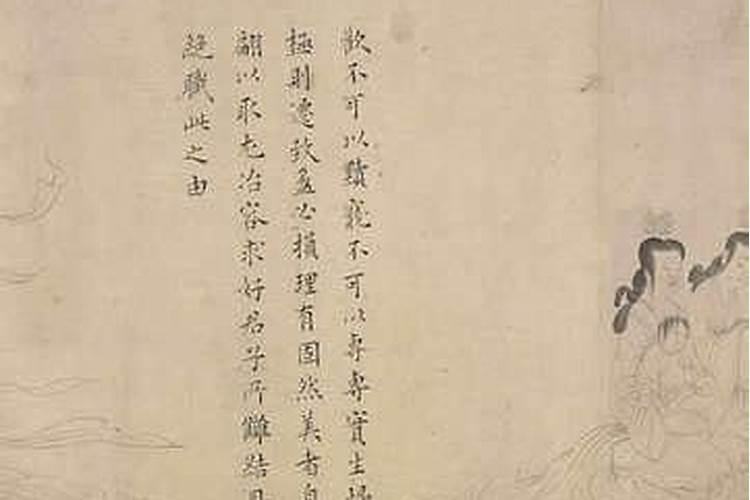 歡不可以黷寵不可以專專實生慢
極則遷致盈必損理有固然美者自
翩以取尤冶容求好君子所讎結恩
絕職此之由